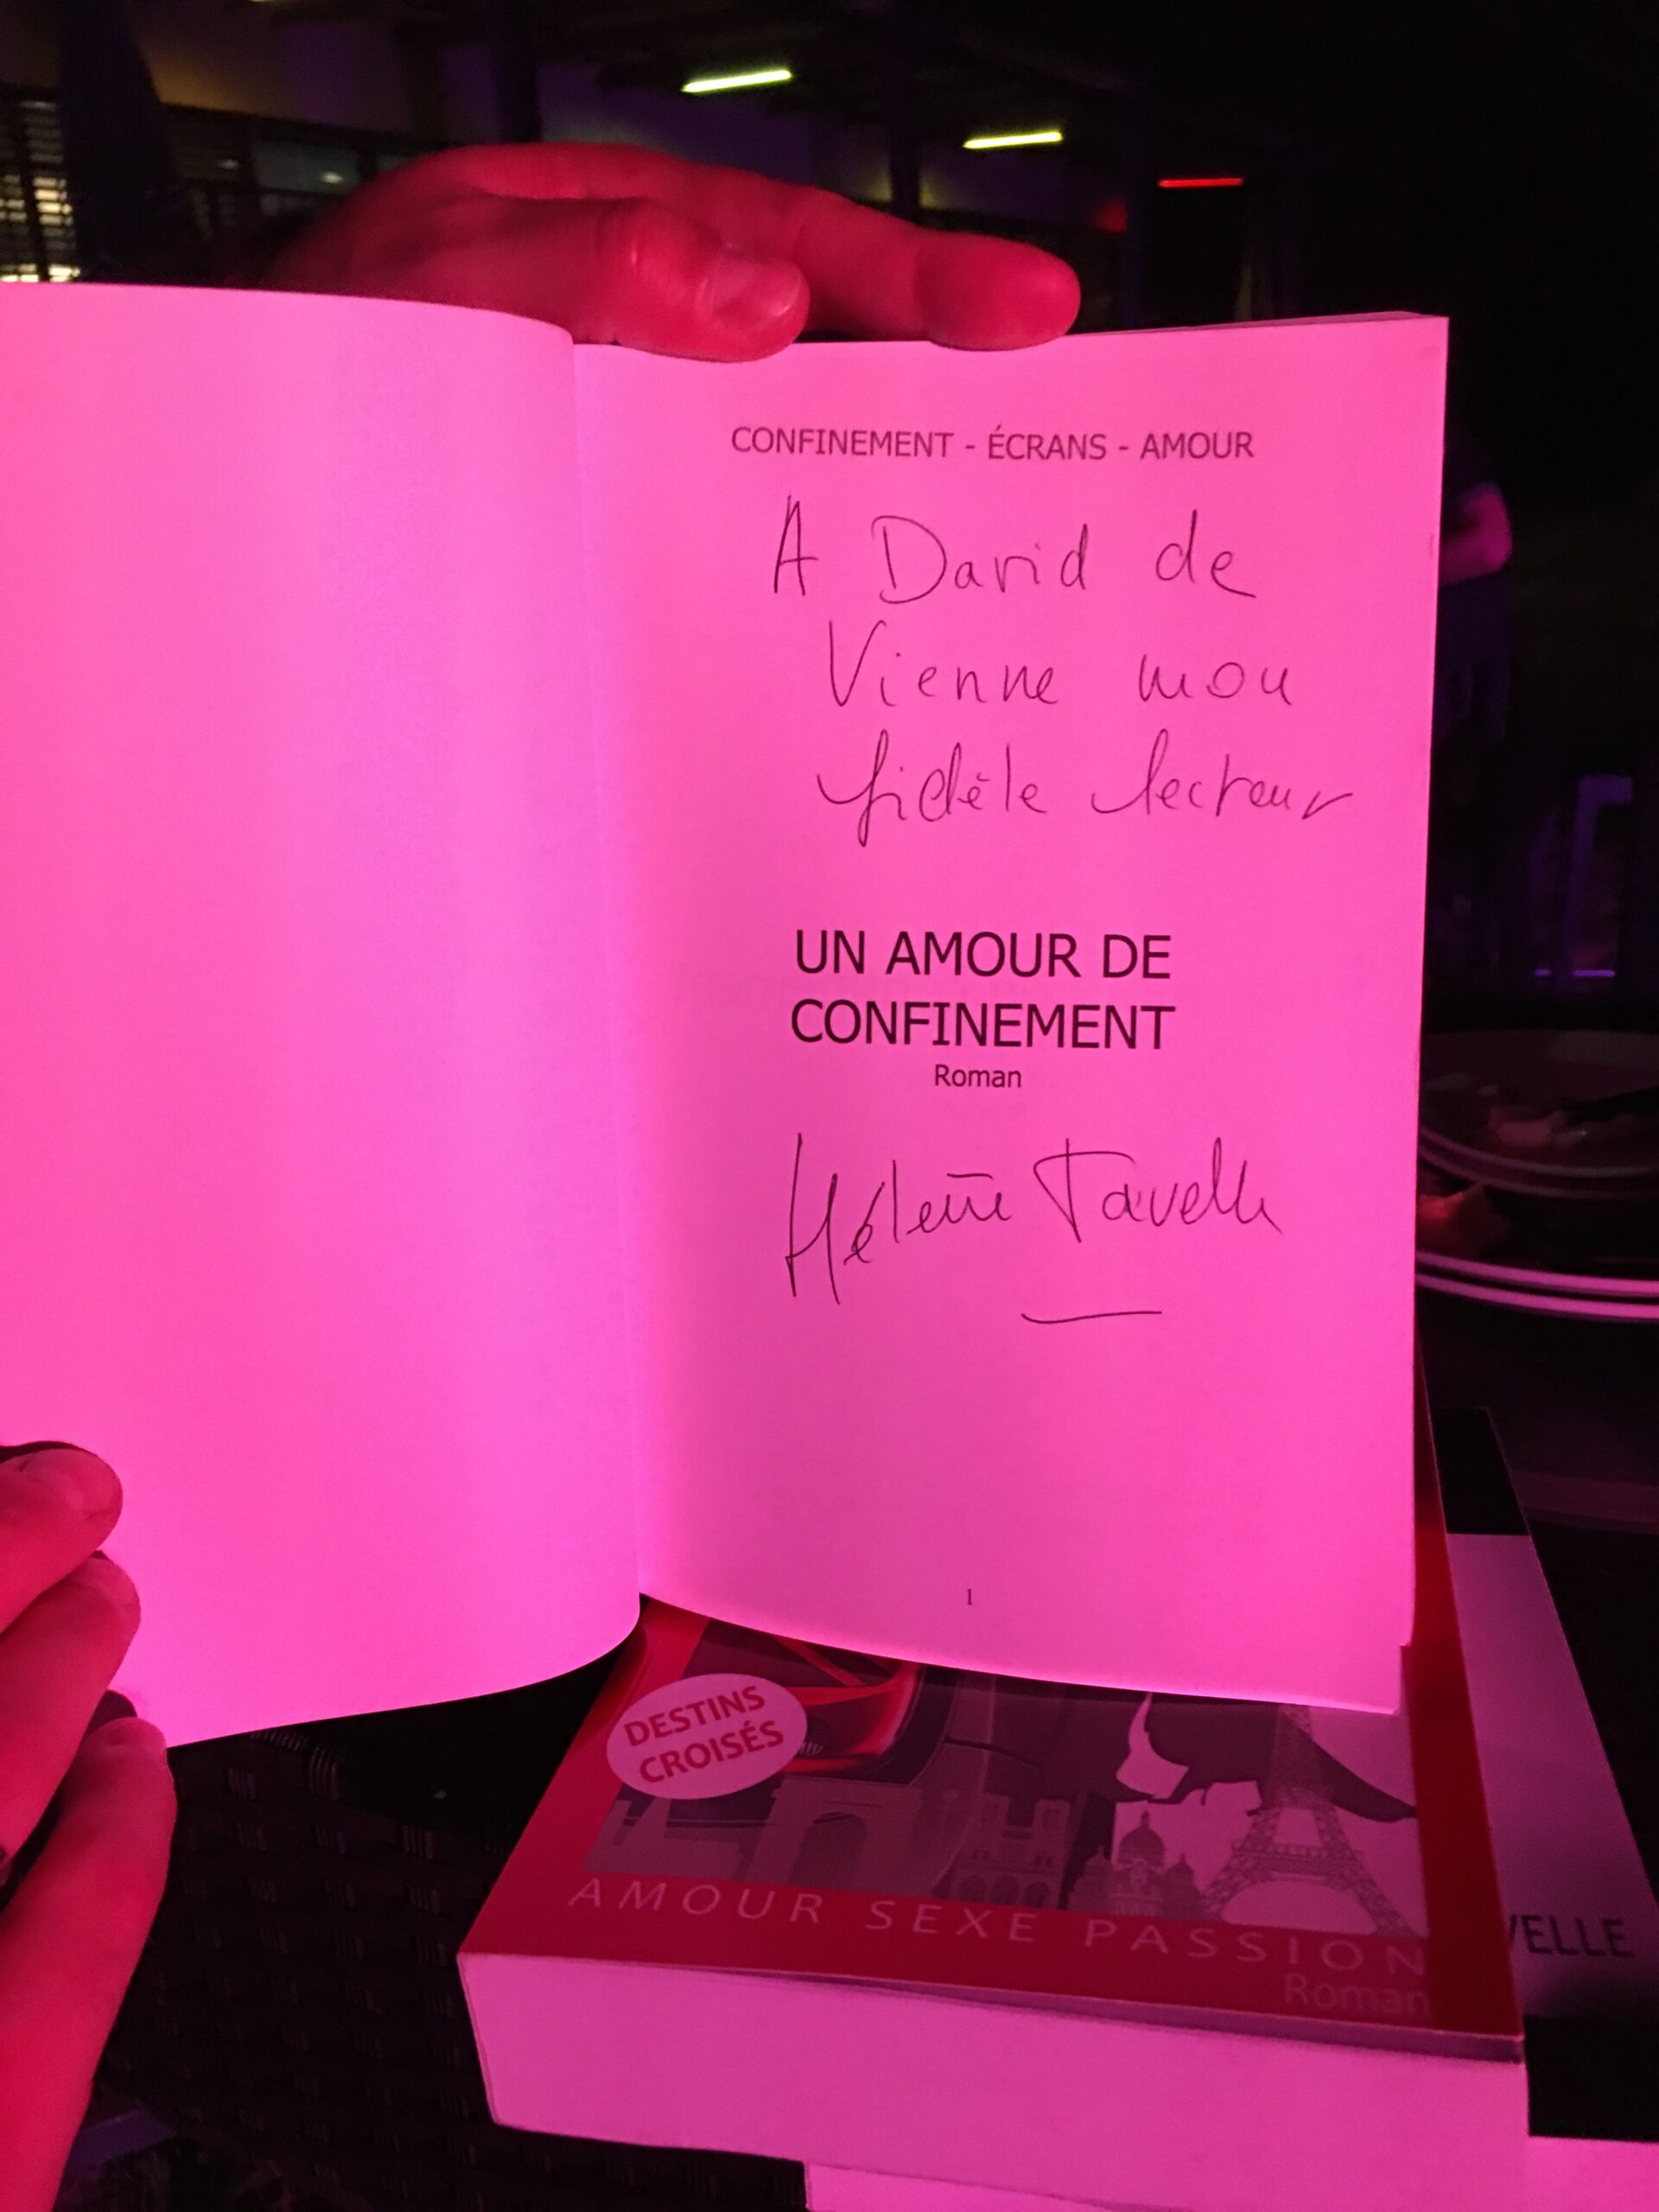 CONFINEMENT - ÉCRANS - AMOUR
A David de
Vienne mon
fidèle lecteur
UN AMOUR DE
CONFINEMENT
Roman
Hélène Tavelle
1
DESTINS
CROISÉS
AMOUR SEXE PASSION
Roman
VELLE